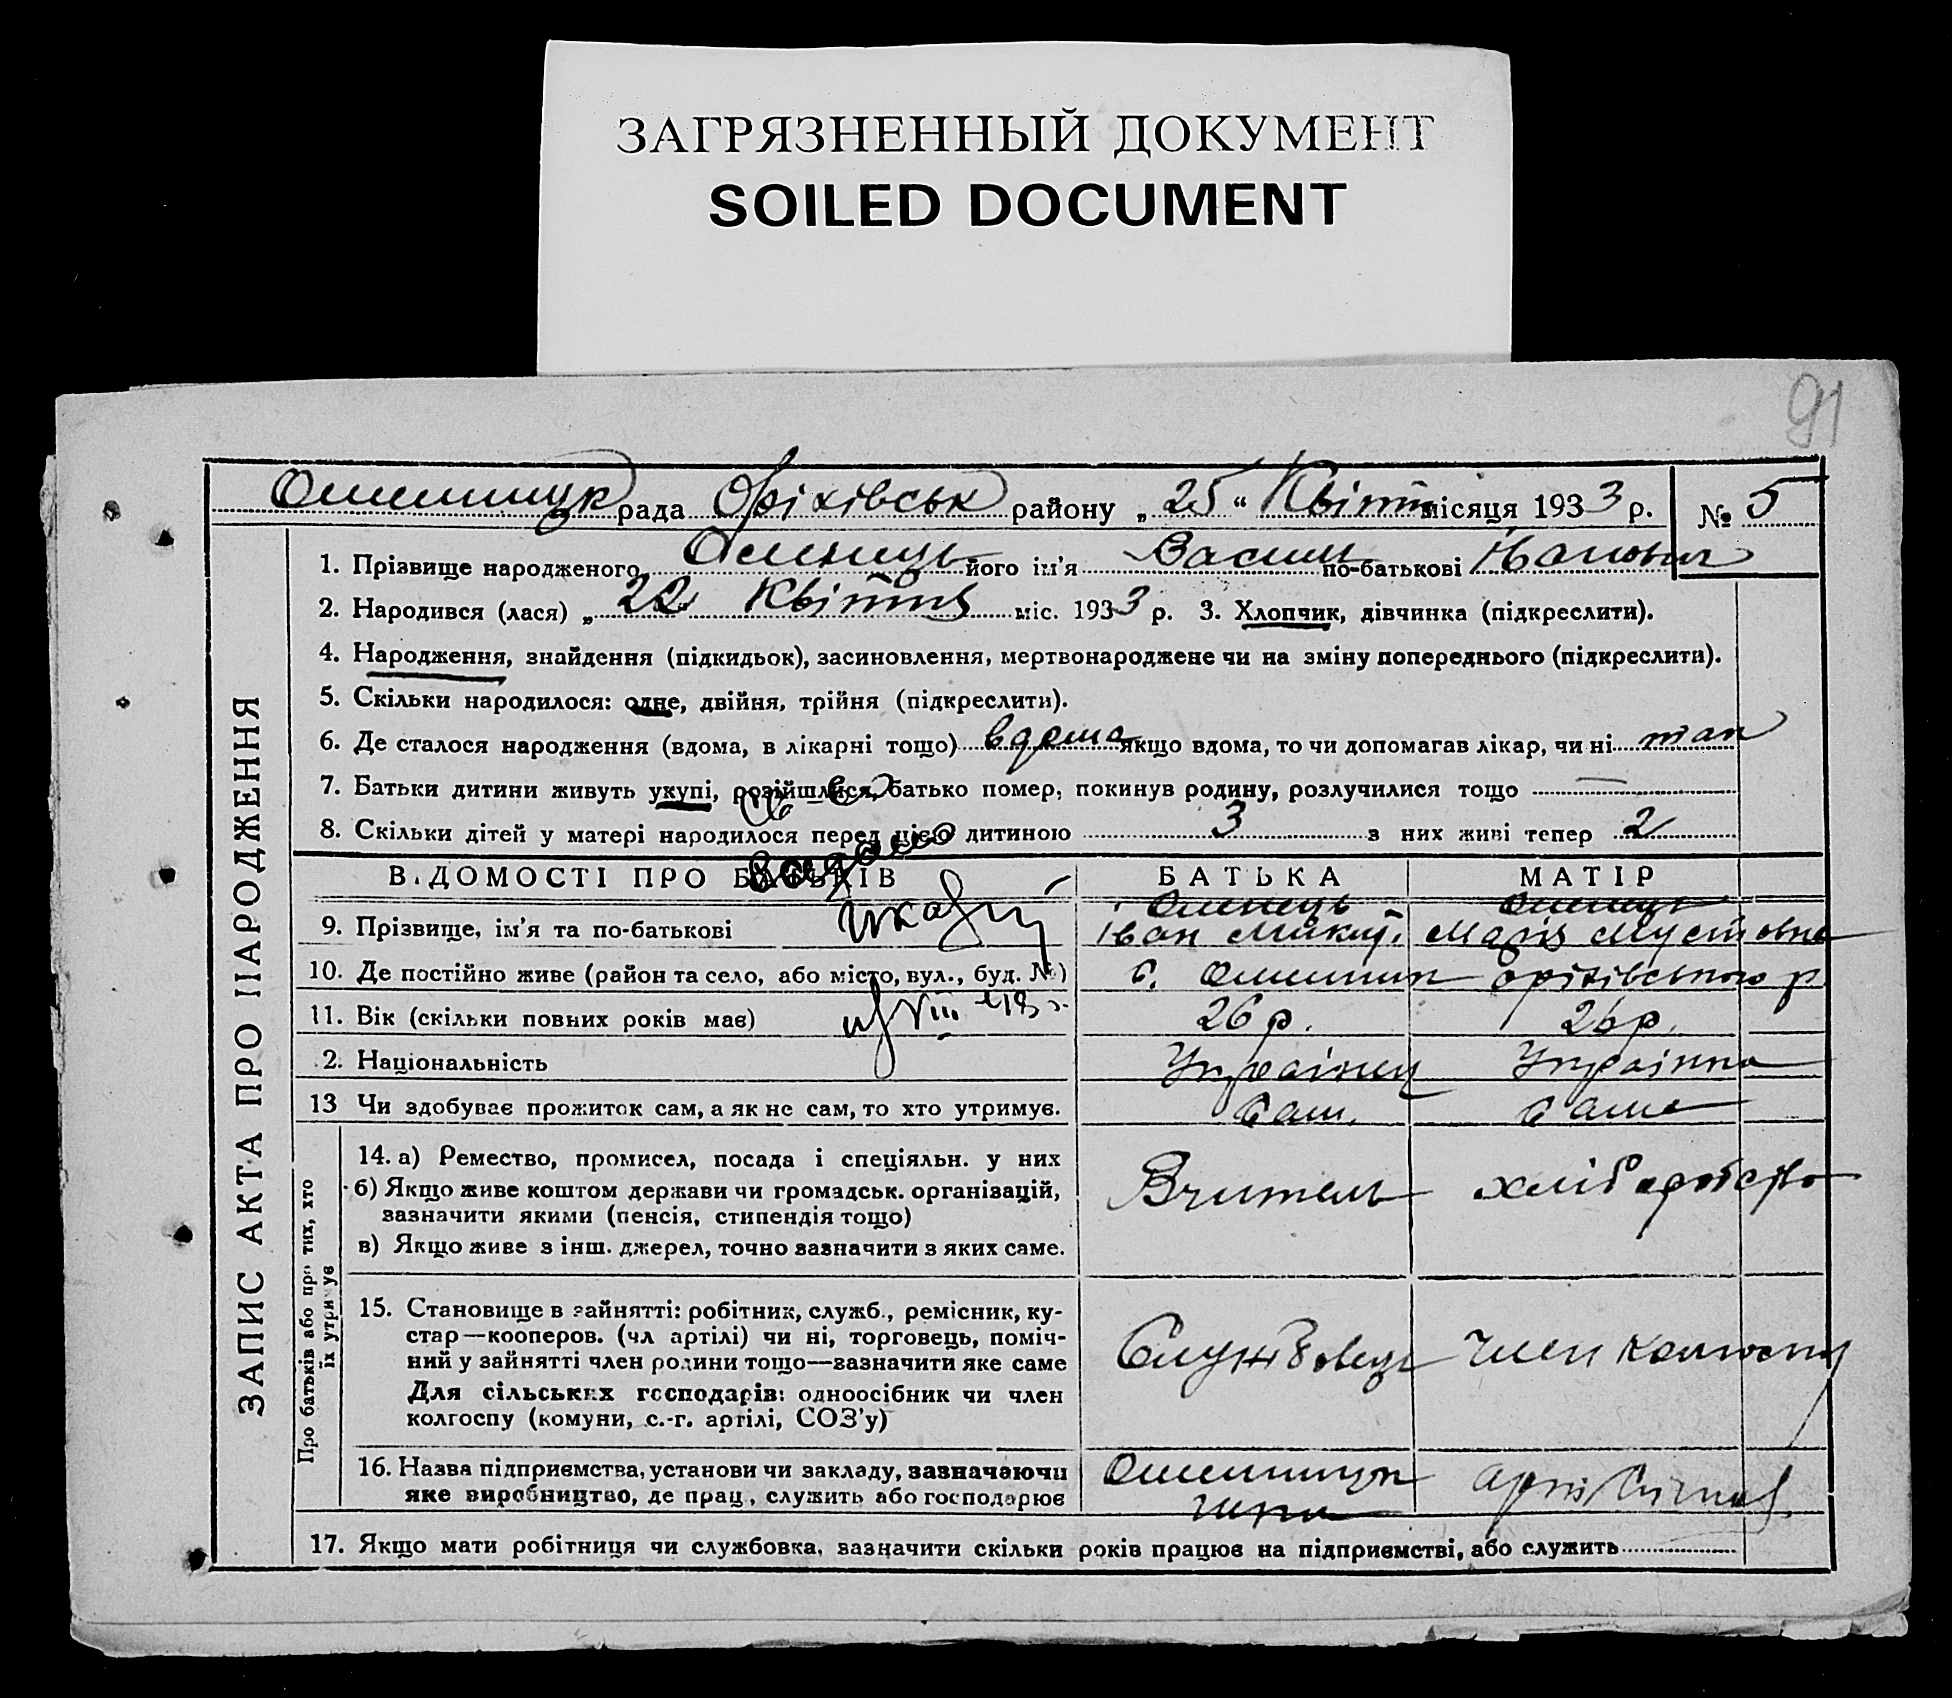 ЗАГРЯЗНЕННЫЙ ДОКУМЕНТ
SOILED DOCUMENT
91
рада Оріхівськ району „25“ Квітня місяця 1933 р. № 5
ЗАПИС АКТА ПРО НАРОДЖЕННЯ
1. Прізвище народженого Оленець його ім'я Василь по-батькові Іванович
2. Народився (лася) „22 Квітня міс. 1933 р. 3. Хлопчик, дівчинка (підкреслити).
4. Народження, знайдення (підкидьок), засиновлення, мертвонароджене чи на зміну попереднього (підкреслити).
5. Скільки народилося: одне, двійня, трійня (підкреслити).
6. Де сталося народження (вдома, в лікарні тощо) вдома якщо вдома, то чи допомагав лікар, чи ні так
7. Батьки дитини живуть укупі, розійшлися, батько помер, покинув родину, розлучилися тощо —
8. Скільки дітей у матері народилося перед цією дитиною 3 з них живі тепер 2
ВІДОМОСТІ ПРО БАТЬКІВ БАТЬКА МАТІР
Оленець Оленець
9. Прізвище, ім'я та по-батькові Іван Микит. Марія
10. Де постійно живе (район та село, або місто, вул., буд. №) с. Оріхівського р
11. Вік (скільки повних років має) 26 р. 26 р.
2. Національність Українец Українка
13 Чи здобуває прожиток сам, а як не сам, то хто утримує. Сам. Сама
Про батьків або про тих, хто їх утримує
14. а) Ремество, промисел, посада і спеціяльн. у них Вчитель хліборобство
б) Якщо живе коштом держави чи громадськ. організацій,
зазначити якими (пенсія, стипендія тощо)
в) Якщо живе з інш. джерел, точно зазначити з яких саме.
15. Становище в зайнятті: робітник, служб., ремісник, ку-
стар—кооперов. (чл артілі) чи ні, торговець, поміч-
ний у зайнятті член родини тощо—зазначити яке саме Службовець член колгоспу
Для сільських господарів: одноосібник чи член
колгоспу (комуни, с.-г. артілі, СОЗ'у)
16. Назва підприємства, установи чи закладу, зазначаючи
яке виробництво, де прац., служить або господарює
17. Якщо мати робітниця чи службовка, зазначити скільки років працює на підприємстві, або служить